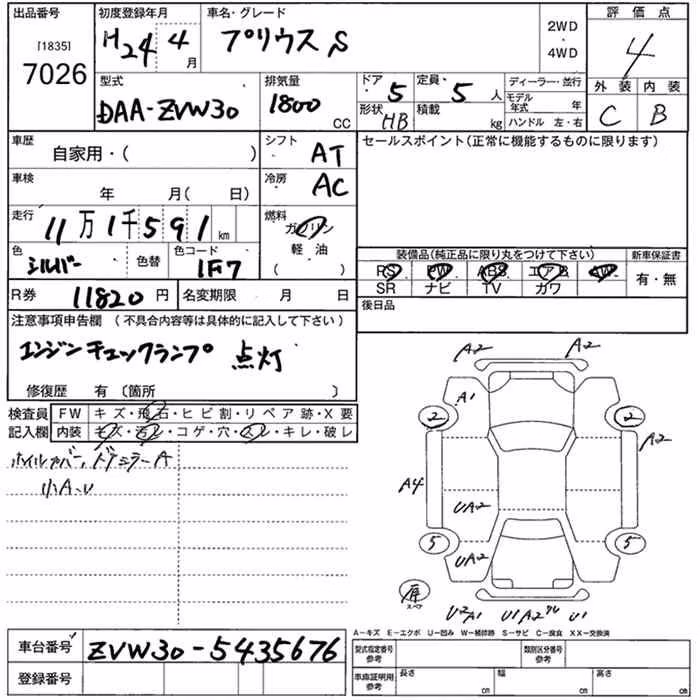 出品番号 初度登録年月 車名・グレード 評価点
[1835] 7026 H24 4月 プリウス S 2WD・4WD 4
型式 排気量 ドア 5 定員 5人 ディーラー・並行 外装 内装
DAA-ZVW30 1800CC 形状 HB 積載 kg モデル年式 年 C B
ハンドル 左・右
車歴 シフト AT セールスポイント(正常に機能するものに限ります)
自家用・( )
車検 冷房 AC
年 月( 日)
走行 11万1千591km 燃料 ガソリン
色 シルバー 色替 色コード 1F7 軽油
( )
装備品(純正品に限り丸をつけて下さい) 新車保証書
PS PW ABS エアB AW 有・無
SR ナビ TV カワ
R券 11820円 名変期限 月 日 後日品
注意事項申告欄 (不具合内容等は具体的に記入して下さい)
エンジンチェックランプ 点灯
修復歴 有 〔箇所 〕
検査員 FW キズ・飛石・ヒビ割・リペア跡・X要
記入欄 内装 キズ・汚レ・コゲ・穴・スレ・キレ・破レ
ドアミラーA
小A、U
A2 A2
A1
2 2
A2
A4
UA2
5 UA2 5
スペア
U2 A1 U1 A2 U1
A−キズ E−エクボ U−凹み W−補修跡 S−サビ C−腐食 XX−交換済
車台番号 ZVW30-5435676
登録番号
型式指定番号 参考 類別区分番号 参考
車庫証明用 参考 長さ cm 幅 cm 高さ cm